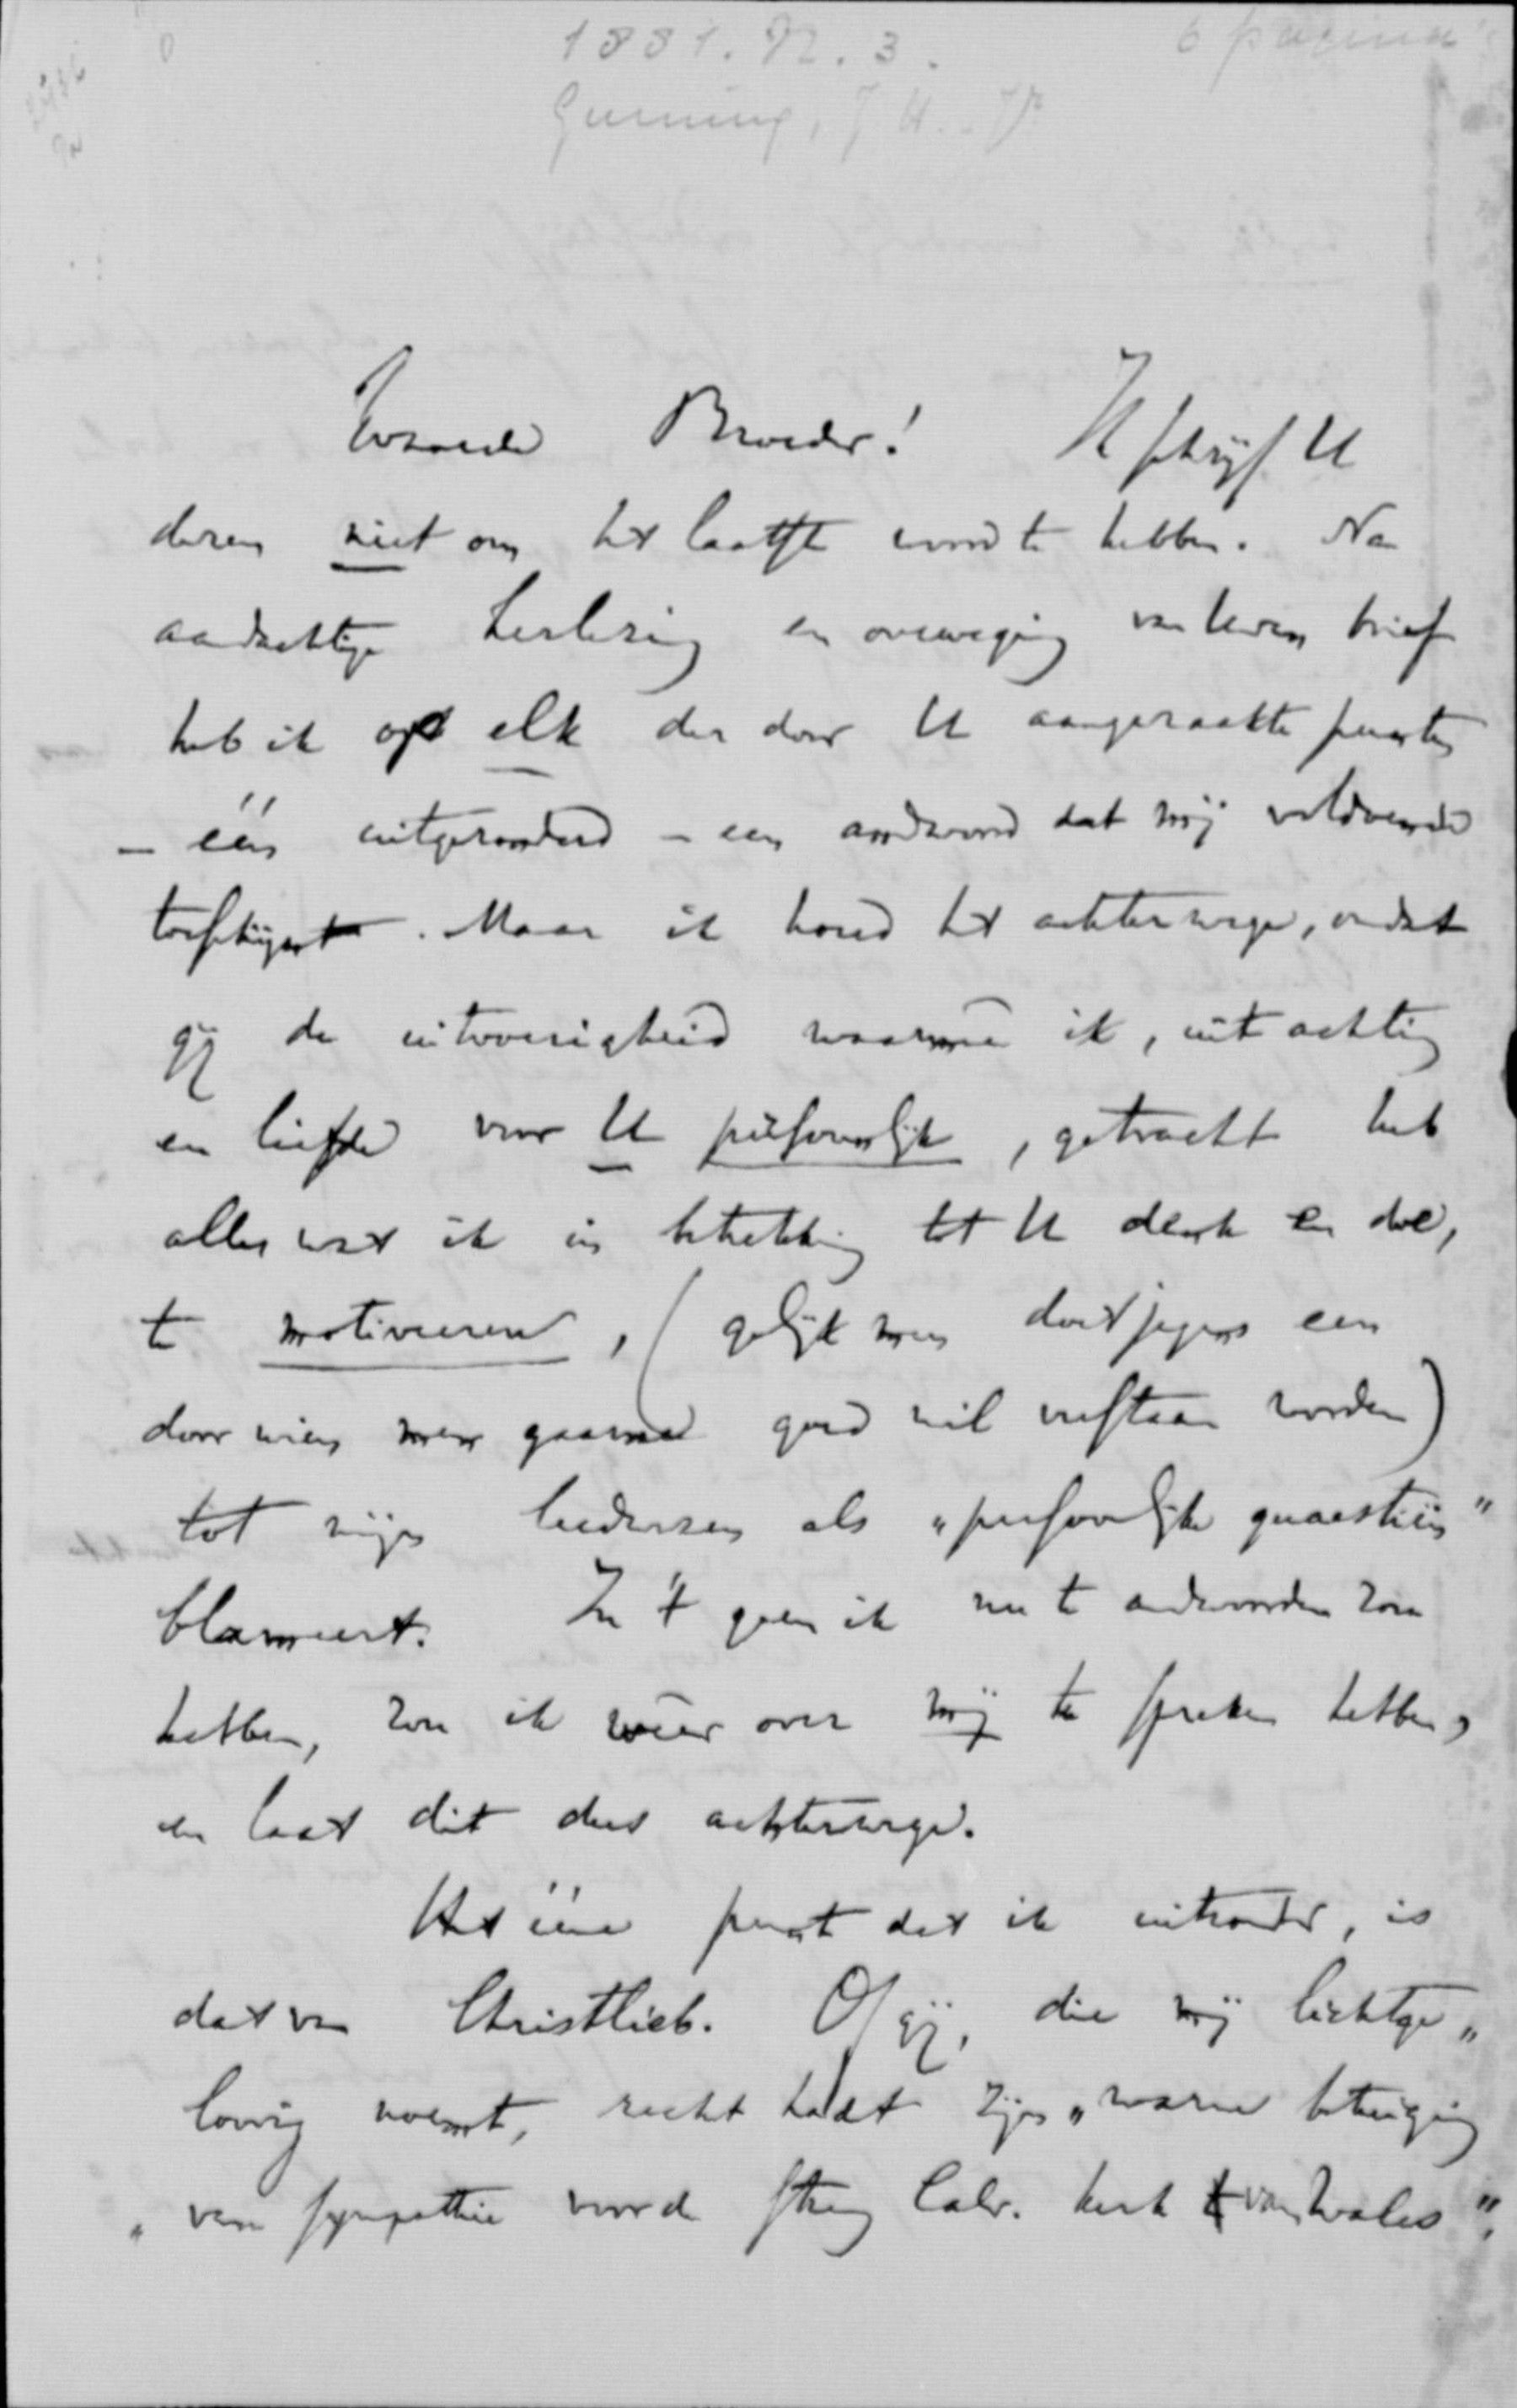 1881. N. 3.
6 pagina's
Gunning, J H. Jr
Waarde Broeder! Ik schrijf U
dezen niet om het laatste woord te hebben. Na
aandachtige herlezing en overweging van Uwen brief
heb ik op elk der door U aangeraakte punten
– één uitgezonderd – een andwoord dat mij voldoende
toeschijnt. Maar ik houd het achterwege, omdat
gij de uitvoerigheid waarmeê ik, uit achting
en liefde voor U persoonlijk, getracht heb
alles wat ik in betrekking tot U denk en doe,
te motiveeren, (gelijk men doet jegens een
door wien men gaarne goed wil verstaan worden)
tot mijn leedwezen als „persoonlijke quaestiën"
blameert. In 't geen ik nu te andwoorden zou
hebben, zou ik weêr over mij te spreken hebben,
en laat dit dus achterwege.
Het ééne punt dat ik uitzonder, is
dat van Christlieb. Of gij, die mij lichtge„
loovig noemt, recht hadt zijn „warme betuiging
„van sympathie voor de streng Calv. kerk van Wales",